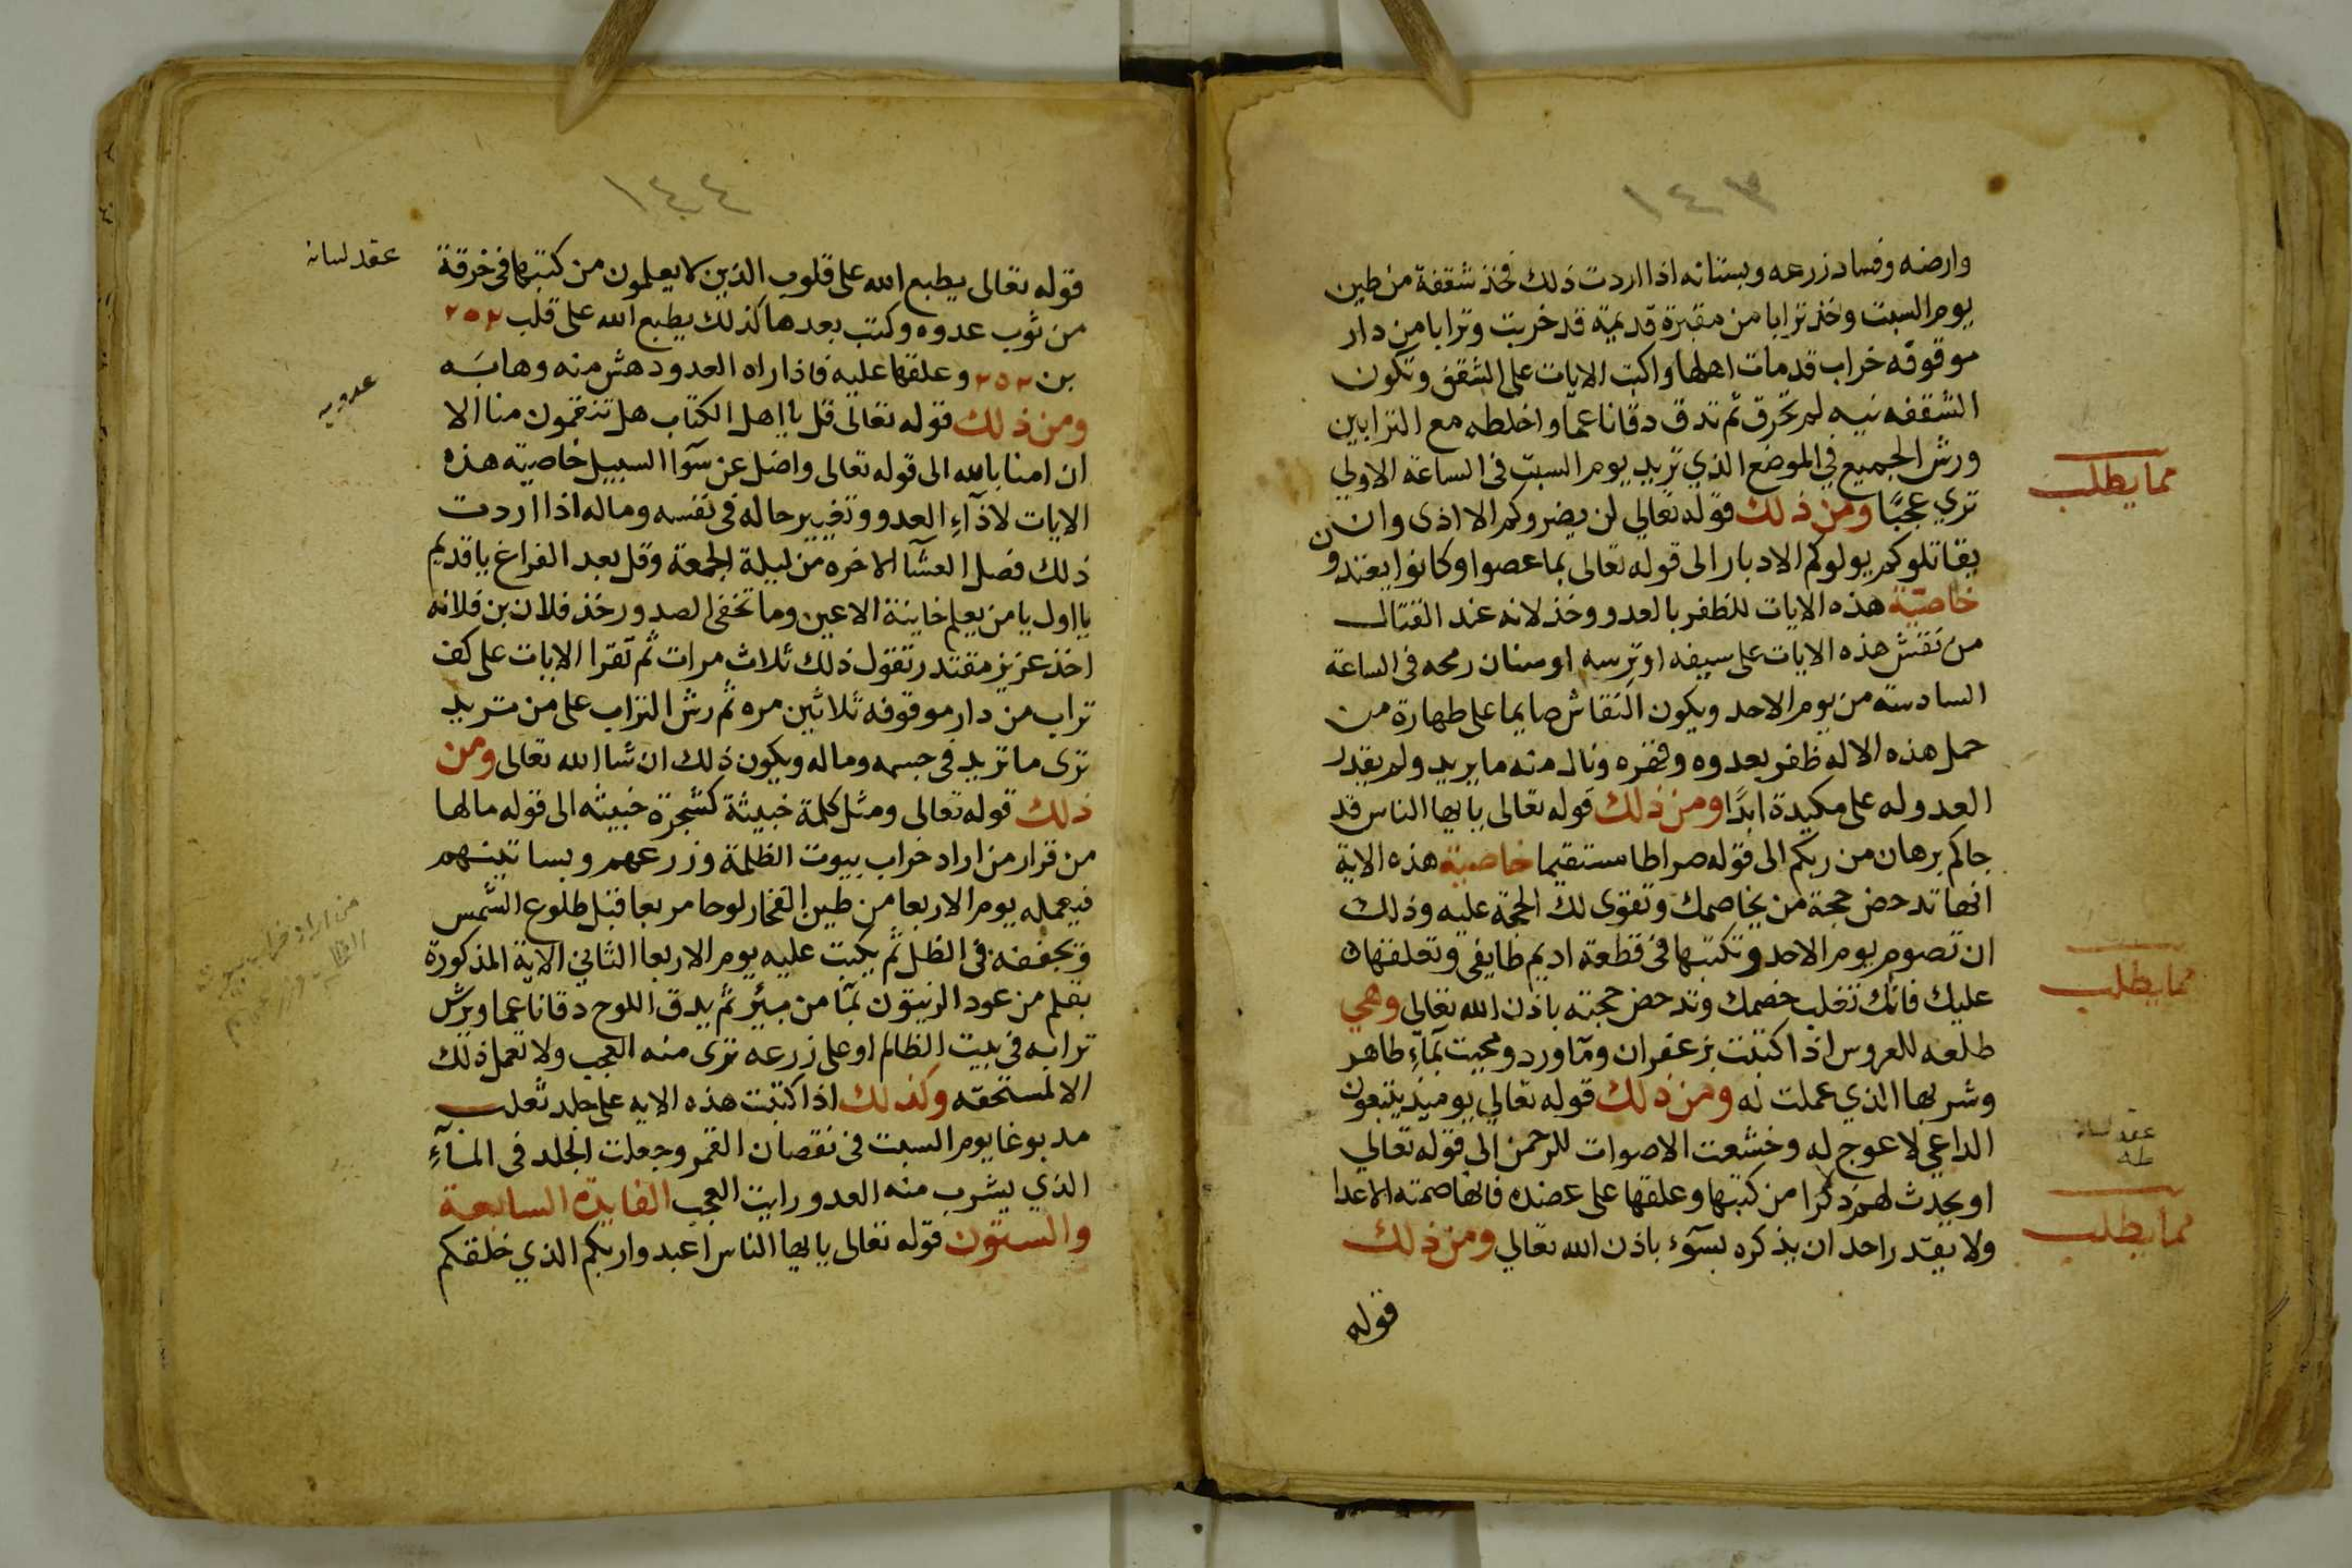 ١٤٣
وارضه وفساد زرعه وبستانه اذا اردت ذلك فخذ شقفة من طين
يوم السبت وخذ ترابا من مقبرة قديمة قد خربت وترابا من دار
موقوفه خراب قد مات اهلها واكتب الايات على الشقف وتكون
الشقفه نيه لم تحرق ثم تدق دقا ناعما واخلطه مع الترابين
ورش الجميع في الموضع الذي تريد يوم السبت فى الساعة الاولي
تري عجبًا ومن ذلك قوله تعالي لن يضروكم الا اذى وان
يقاتلوكم يولوكم الادبار الى قوله تعالى بما عصوا وكانوا يعتدون
خاصيّة هذه الايات للظفر بالعدو وخذلانه عند القتال
من نقش هذه الايات على سيفه او ترسه او سنان رمحه فى الساعة
السادسة من يوم الاحد ويكون النقاش صايما على طهارة من
حمل هذه الاله ظفر بعدوه وقهره ونال منه ما يريد ولم يقدر
العدو له على مكيدة ابدًا ومن ذلك قوله تعالى يايها الناس قد
جاكم برهان من ربكم الى قوله صراطا مستقيما خاصية هذه الاية
انها تدحض حجة من يخاصمك وتقوى لك الحجة عليه وذلك
ان تصوم يوم الاحد وتكتبها فى قطعة اديم طايفى وتعلقها
عليك فانك تغلب خصمك وتدحض حجته باذن الله تعالى وهي
طلعه للعروس اذا كتبت بزعفران ومآ ورد ومحيت بمآءِ طاهر
وشربها الذي عملت له ومن ذلك قوله تعالي يوميذ يتبعون
الداعي لا عوج له وخشعت الاصوات للرحمن الى قوله تعالي
او يحدث لهم ذكرا من كتبها وعلقها على عضده فانها صمته الاعدا
ولا يقدر احد ان يذكره بسوء باذن الله تعالي ومن ذلك
قوله
مما يطلب
مما يطلب
عقد لسانه
مما يطلب
١٤٤
قوله تعالى يطبع الله على قلوب الذين لا يعلمون من كتبها فى خرقة
من ثوب عدوه وكتب بعدها كذلك يطبع الله على قلب ٢٥٢
بن ٢٥٢ وعلقها عليه فاذا راه العدو دهش منه وهابَه
ومن ذلك قوله تعالى قل يا اهل الكتاب هل تنقمون منا الا
ان امنا بالله الى قوله تعالى واضل عن سوآ السبيل خاصيته هذه
الايات لاذآءِ العدو وتغيير حاله فى نفسه وماله اذا اردت
ذلك فصل العشآ الاخره من ليلة الجمعة وقل بعد الفراغ يا قديم
يا اول يا من يعلم خاينة الاعين وما تخفى الصدور خذ فلان بن فلانه
اخذ عزيز مقتدر تقول ذلك ثلاث مرات ثم تقرا الايات على كف
تراب من دار موقوفه ثلاثين مره ثم رش التراب على من تريد
ترى ما تريد فى جسمه وماله ويكون ذلك ان شا الله تعالى ومن
ذلك قوله تعالى ومثل كلمة خبيثة كشجرة خبيثه الى قوله مالها
من قرار من اراد خراب بيوت الظلمة وزرعهم وبساتينهم
فيعمله يوم الاربعا من طين الفخار لوحا مربعا قبل طلوع الشمس
وتجففه فى الظل ثم يكتب عليه يوم الاربعا الثاني الاية المذكورة
بقلم من عود الزيتون بمآ من بئر ثم يدق اللوح دقا ناعما ويرش
ترابه فى بيت الظالم او على زرعه ترى منه العجب ولا تعمل ذلك
الا لمستحقه وكذلك اذا كتبت هذه الايه على جلد ثعلب
مدبوغا يوم السبت فى نقصان القمر وجعلت الجلد فى المآءِ
الذي يشرب منه العدو رايت العجب الفايدة السابعة
والستون قوله تعالى يايها الناس اعبدوا ربكم الذي خلقكم
عقد لسانه
من اراد خراب